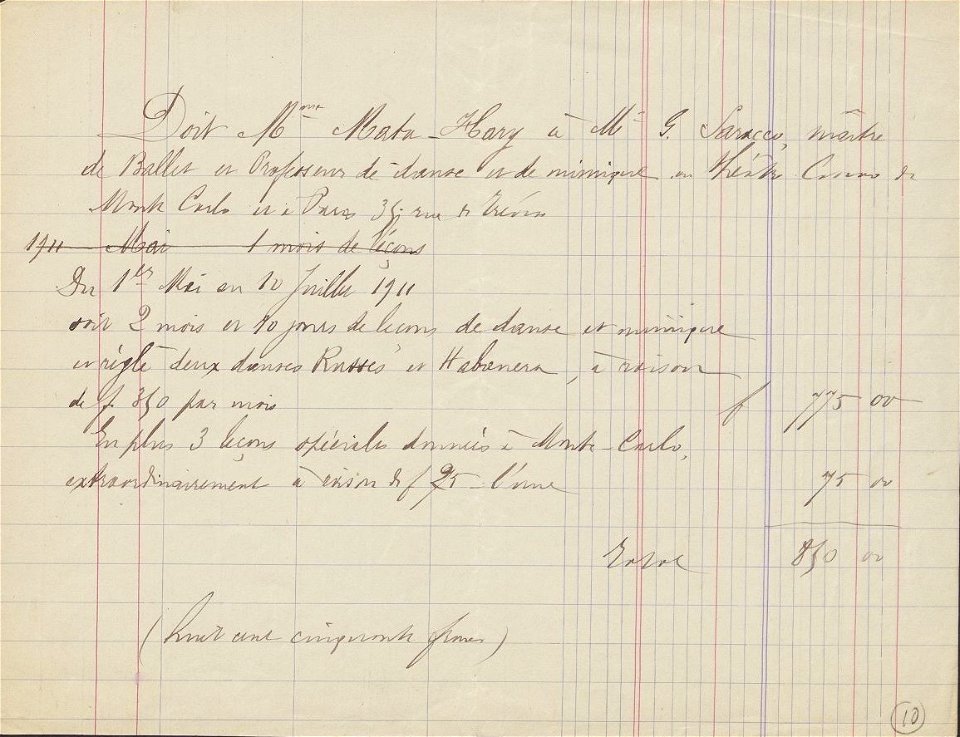 Doit Mme Mata-Hary à Mr G. Saracco, maître
de Ballet et Professeur de danse et de mimique au Théâtre Casino de
Monte Carlo et à Paris 35, rue de Trévise
1911 Mai 1 mois de leçons
Du 1er Mai au 10 Juillet 1911
soit 2 mois et 10 jours de leçons de danse et mimique
et réglé deux danses Russes et Habanera, à raison
de f 350 par mois f 775 00
En plus 3 leçons spéciales données à Monte-Carlo,
extraordinairement à raison de f 25 l'une 75 00
Total 850 00
(huit cent cinquante francs)
10